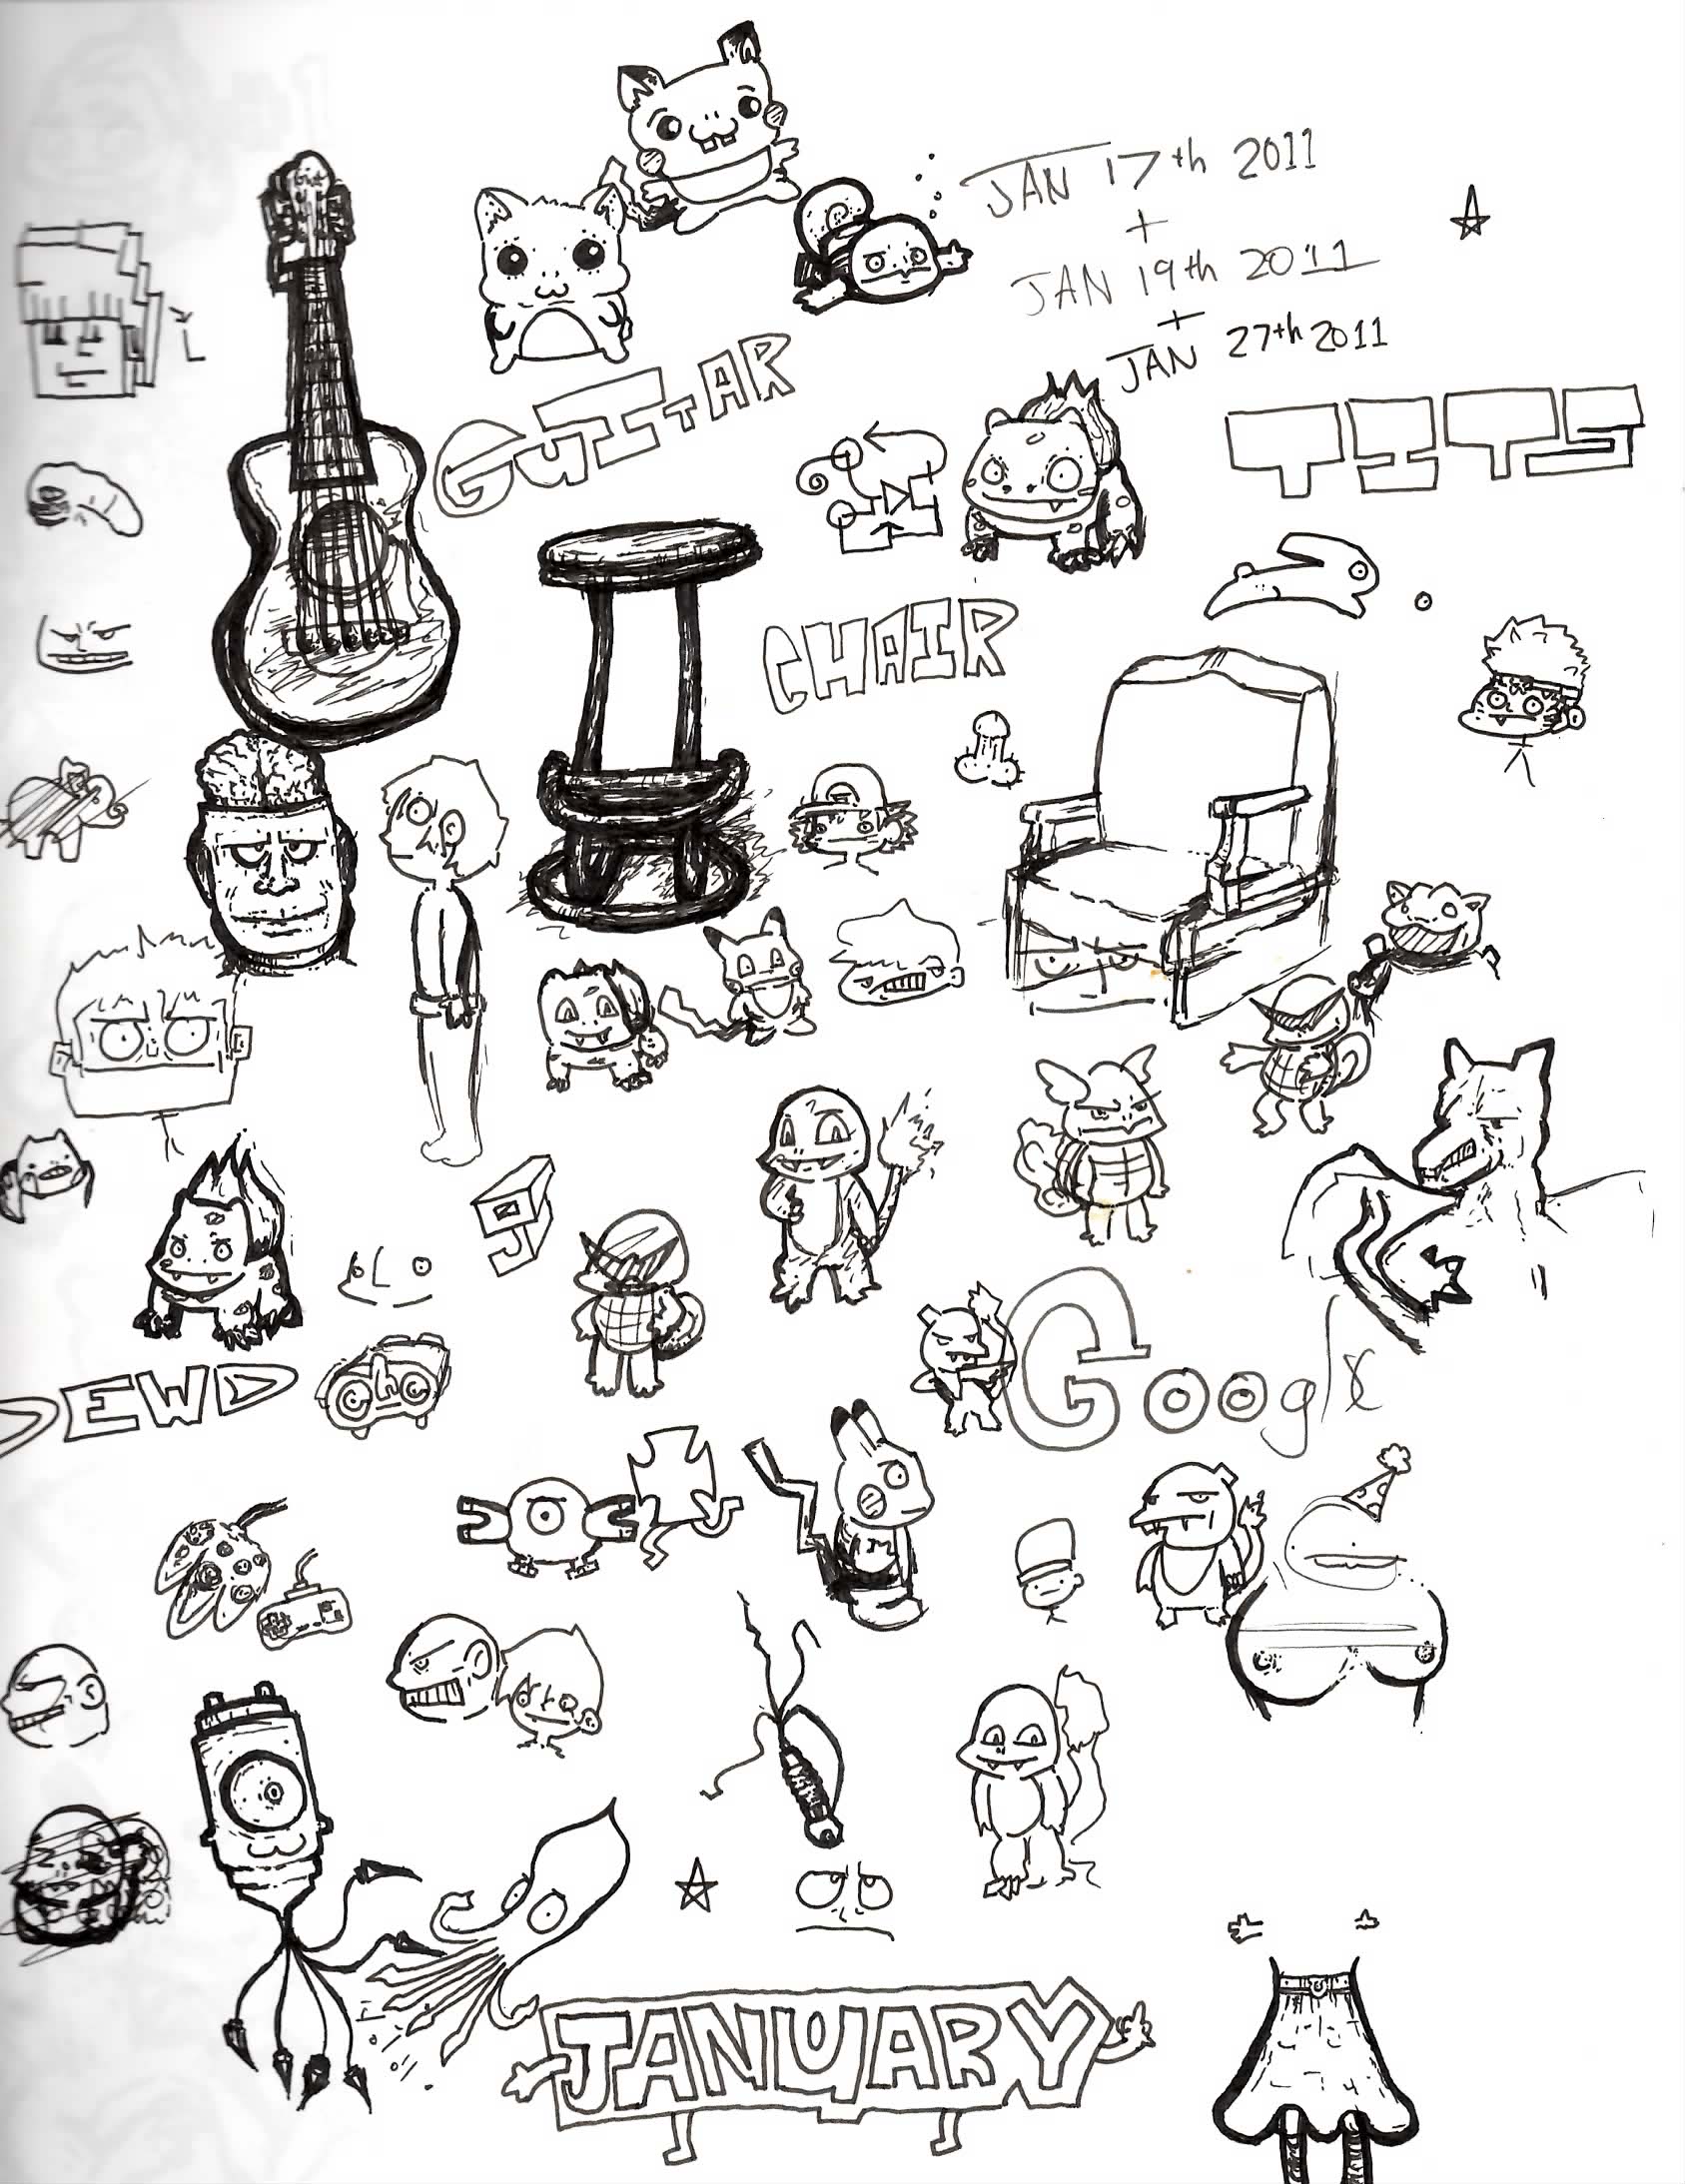 JAN 17th 2011
+
JAN 19th 2011
+
JAN 27th 2011
GUITAR
TITS
CHAIR
DEWD
Google
JANUARY